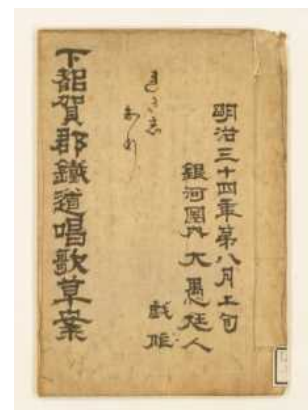 明治三十四年第八月上旬
銀河園内大愚狂人
戯作
下都賀郡鐵道唱歌草案